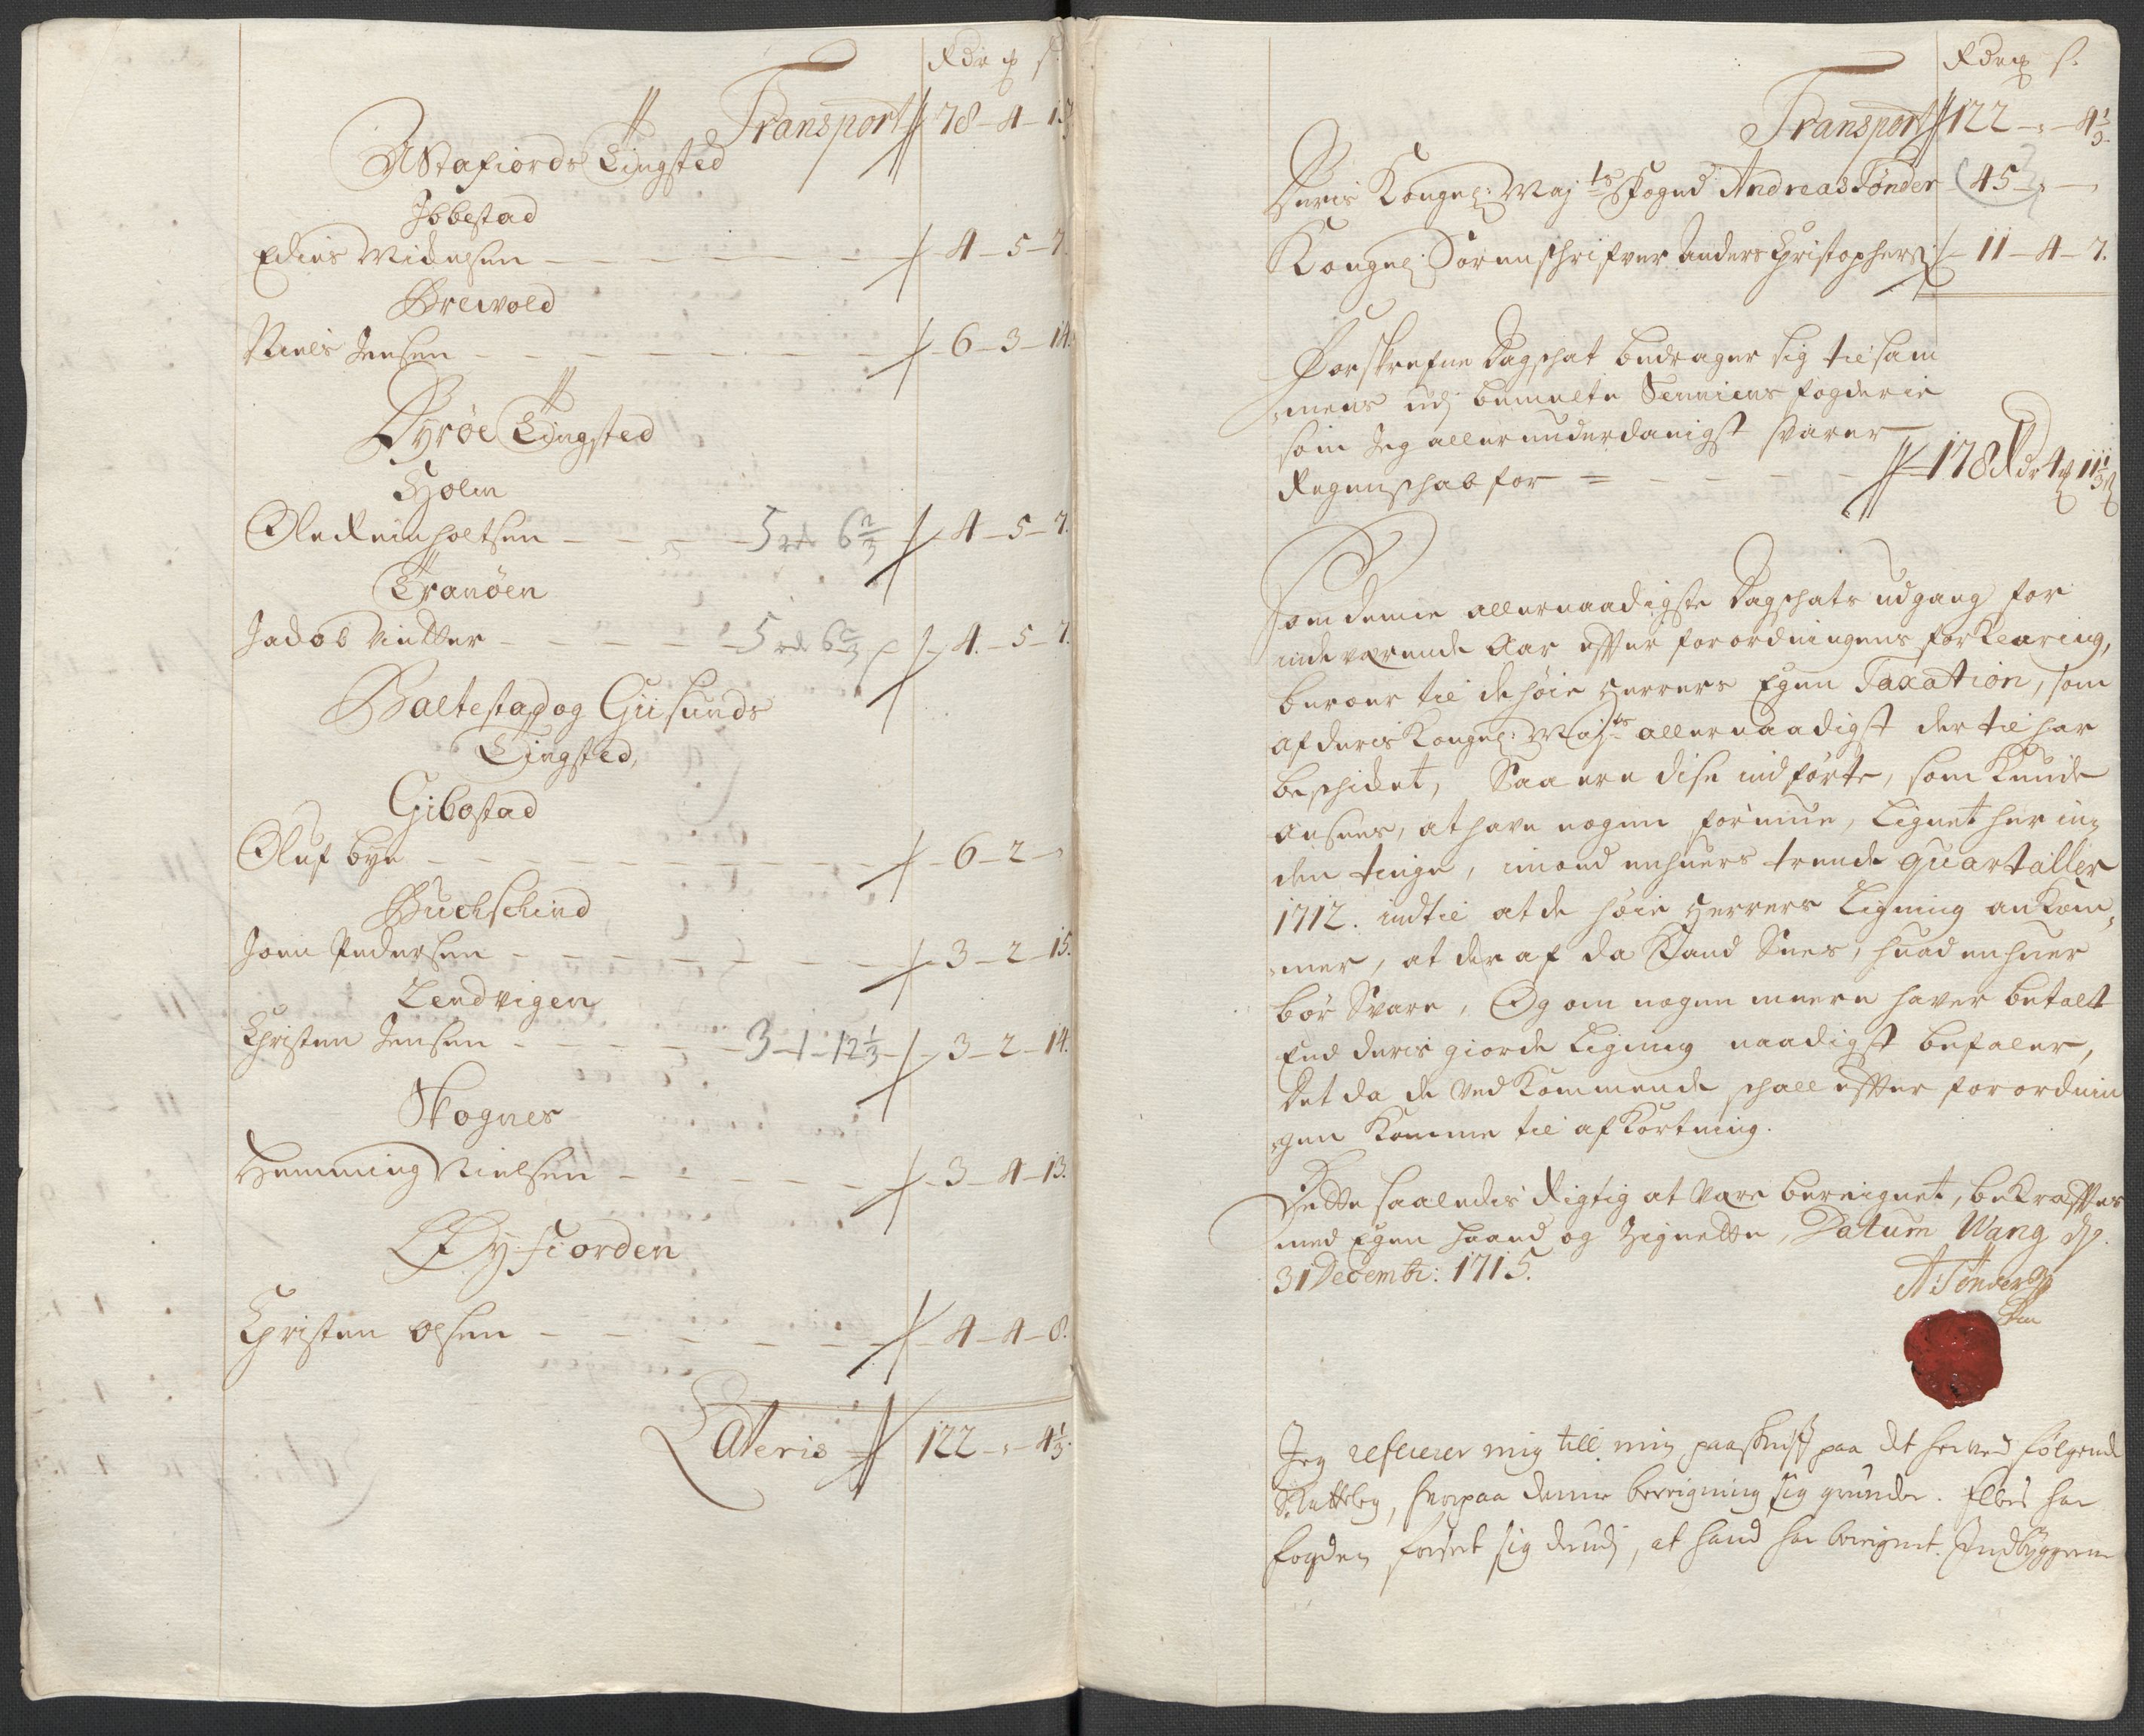 Rdr ꝶ s.
Transport 78-4-13
Astafiords Tingsted
Ibbestad
Edies Michelsen 4-5-7.
Brewold
Niels Jensen 6-3-14.
Dyröe Tingsted
Holm
Ole Reinholtsen 5 rd 6 2/3 4-5-7.
Tranöen
Jacob Vinther 5 rd 6 2/3 4-5-7.
Baltestad og Giisunds
Tingsted,
Gibostad
Oluf bye 6-2-
Buchschind
Joen Pedersen 3-2-15.
Lendvigen
Christen Jensen 3-1-12 1/3 3-2-14.
Skognes
Hemming Nielsen 3-4-13.
Öyfiorden
Christen Olsen 4-4-8.
Lateris 122-,-4 1/3.
Rdr ꝶ s.
Transport 122-,-4 1/3.
Deris Kongel: Maj:ts Foged Andreas Tönder 45-,-,
Kongel: Sorenschrifver Anders Christophers: 11-4-7.
Forskrefne Dagschat bedrager sig til sam
mens udj bemelte Senniens fogderie
som Jeg allerunderdanigst svarer
Regenschab for 178 Rdr 4 ꝶ 11 1/3 s
Som denne allernaadigste Dagschats udgang for
indeværende Aar effter forordningens forklaring,
beroer til de höie Herrers Egen Taxation, som
af deris Kongel: Maj:ts allernaadigst der til har
beschicket, Saa ere disse indförte, som kunde
ansees, at have nogen formue, Lignet her in
den tinge, imod enhvers trende quartaller
1712. indtil at de höie Herrers Ligning ankom,
mer, at der af da kand Sees, hvad enhver
bör Svare, Og om nogen meere haver betalt
End deris giorde Ligning naadigst befaler,
Det da de vedkommende schall effter forordnin
gen komme til afkortning.
Dette saaledis Rigtig at være beregnet, bekrefftes
med Egen haand og Zignette, Datum Wang d.
31 Decembr: 1715.
A: Tönder
Jeg refererer mig till min paaskrifft paa det herved fölgende
, hvorpaa denne bereigning sig grunder. Ellers har
fogden forset sig derudj, at hand har bereignet Indbyggerne